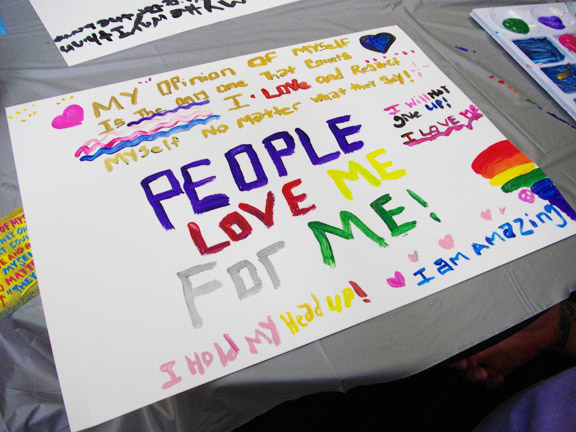 MY OPiNiON OF MYSELF
Is The Only one That Counts
I LOVe and Respect
MYSELF No Matter what they Say!
I Will Not
give UP!
I LOVE ME
PEOPLE
LOVE ME
FOR ME!
I am AmaZing
I Hold MY Head up!